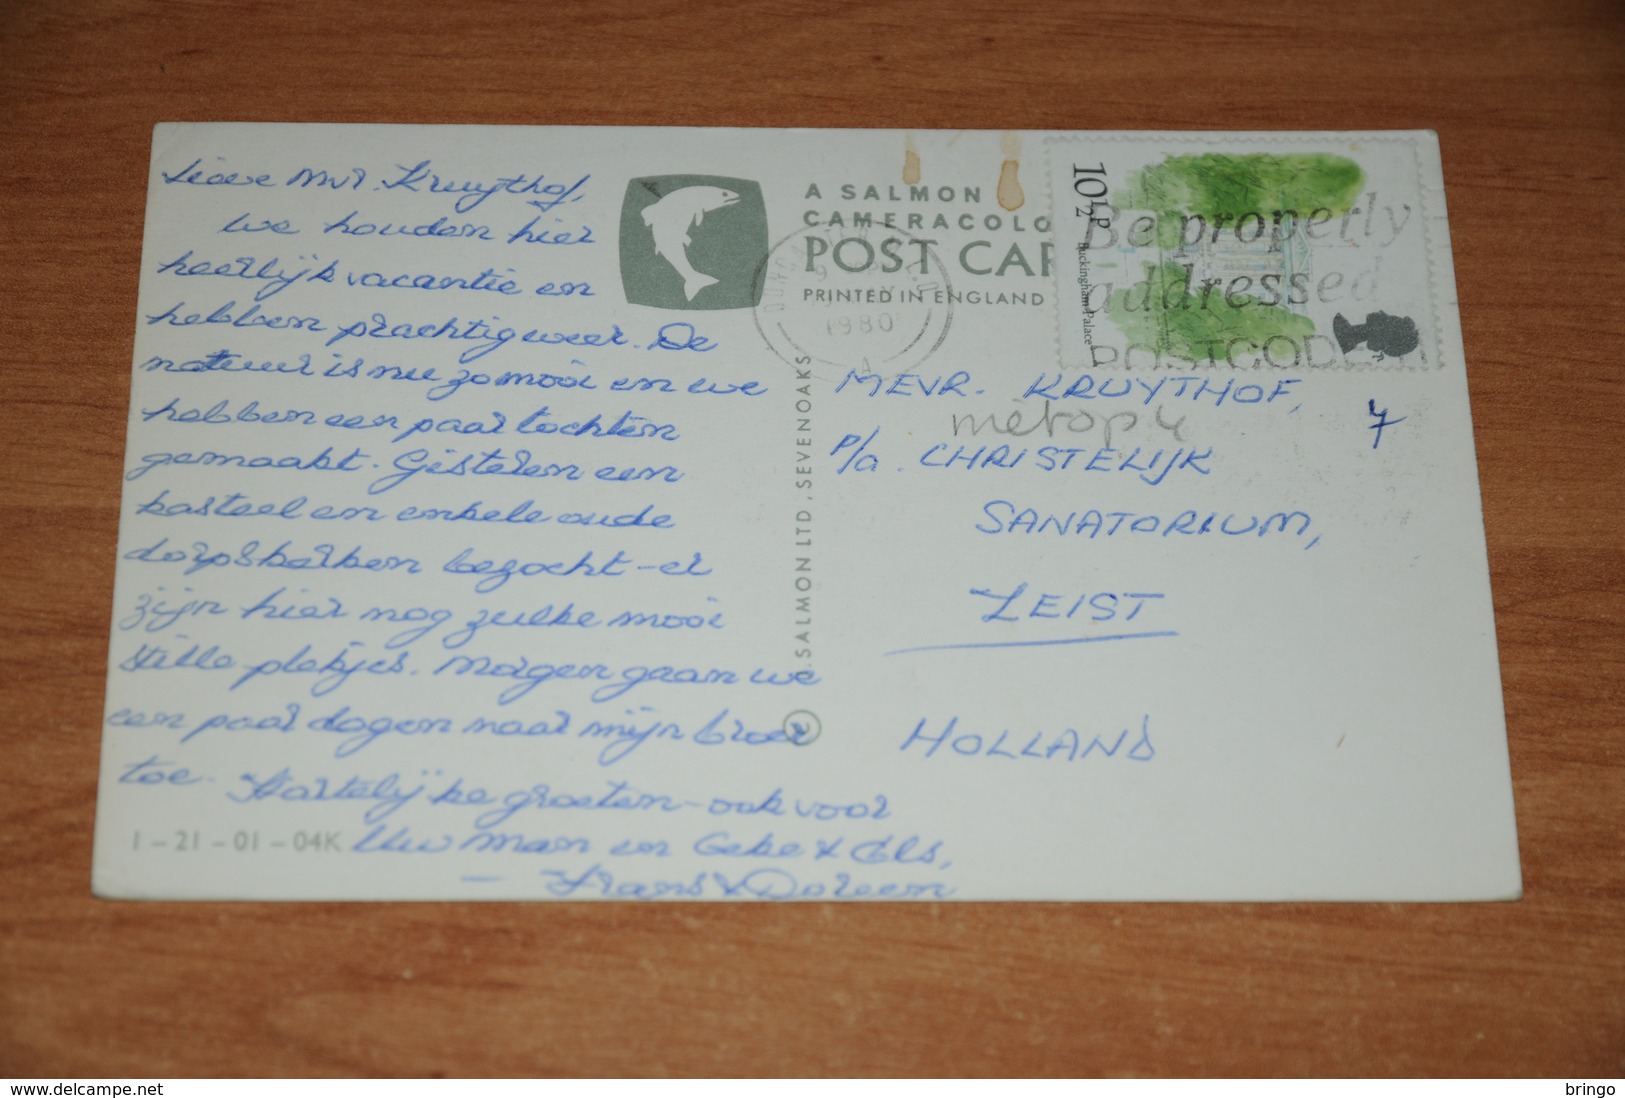 Lieve Mvr. Kruythof,
we houden hier
heerlijk vacantie en
hebben prachtig weer. De
natuur is nu zo mooi en we
hebben een paar tochten
gemaakt. Gisteren een
kasteel en enkele oude
dorpskerken bezocht - er
zijn hier nog zulke mooie
stille plekjes. Morgen gaan we
een paar dagen naar mijn broer
toe. Hartelijke groeten - ook voor
Uw man en Geke & Els,
- Frans & Doreen
1 - 21 - 01 - 04K
A SALMON
CAMERACOLO
POST CAR
PRINTED IN ENGLAND
1980
A
© SALMON LTD, SEVENOAKS
10½P
Buckingham Palace
Be properly
addressed
POSTCODE
MEVR. KRUYTHOF,
metop 4
7
P/a. CHRISTELIJK
SANATORIUM,
ZEIST
HOLLAND
delcampe.net
bringo